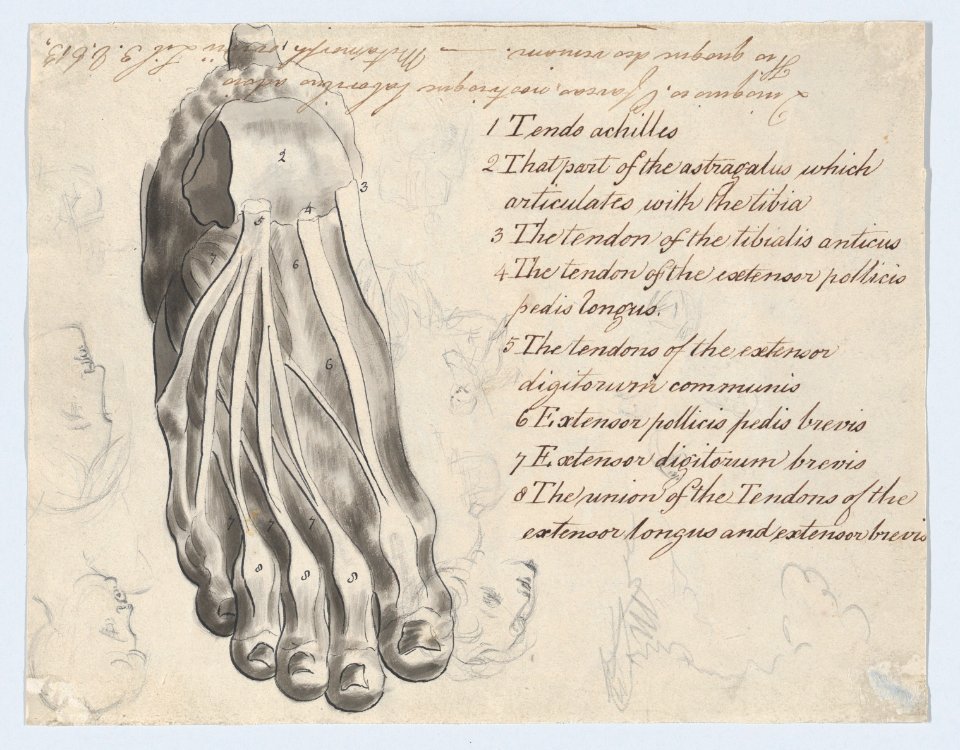 faveas, nostrisque laboribus adsis
His quoque des veniam. — Metamorph. Lib 3.
1 Tendo achilles
2 That part of the astragalus which
articulates with the tibia
3 The tendon of the tibialis anticus
4 The tendon of the extensor pollicis
pedis longus.
5 The tendons of the extensor
digitorum communis
6 Extensor pollicis pedis brevis
7 Extensor digitorum brevis
8 The union of the Tendons of the
extensor longus and extensor brevis
1
2
3
4
5
6
7
6
7
7
7
8
8
8